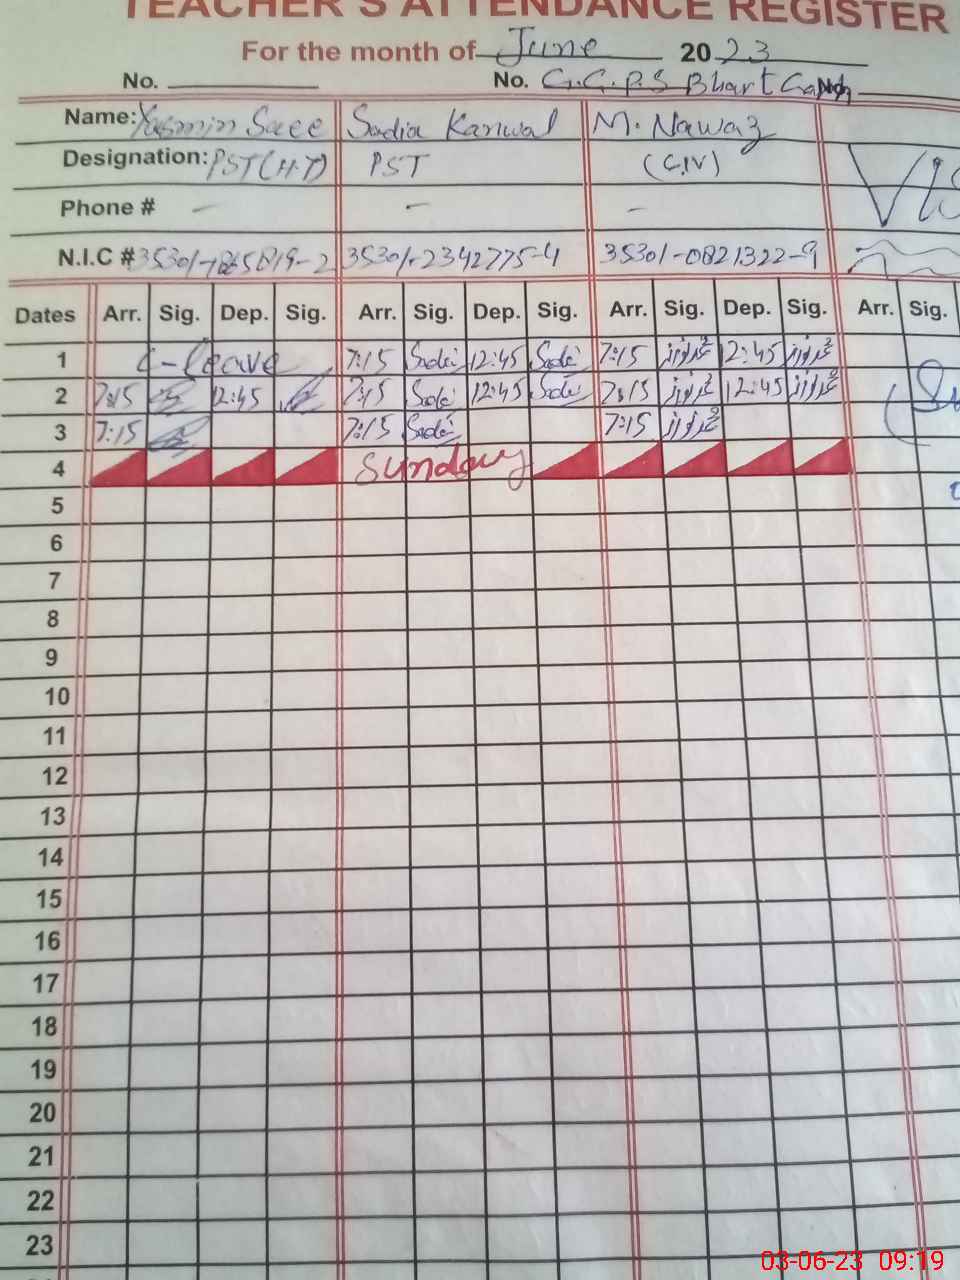 TEACHER'S ATTENDANCE REGISTER
For the month of June 2023
No. No. G.G.P.S Bhart
Name: Yasmin Sadia Kanwal M. Nawaz
Designation: PST(H.T) PST (C.IV)
Phone # - - -
N.I.C # 35301-2342775-4 35301-0821322-9
Dates Arr. Sig. Dep. Sig. Arr. Sig. Dep. Sig. Arr. Sig. Dep. Sig. Arr. Sig.
1 C-leave 7:15 Sadia 12:45 Sadia 7:15 12:45
2 7:15 12:45 7:15 Sadia 12:45 Sadia 7:15 12:45
3 7:15 7:15 Sadia 7:15
4 Sunday
5
6
7
8
9
10
11
12
13
14
15
16
17
18
19
20
21
22
23
03-06-23 09:19